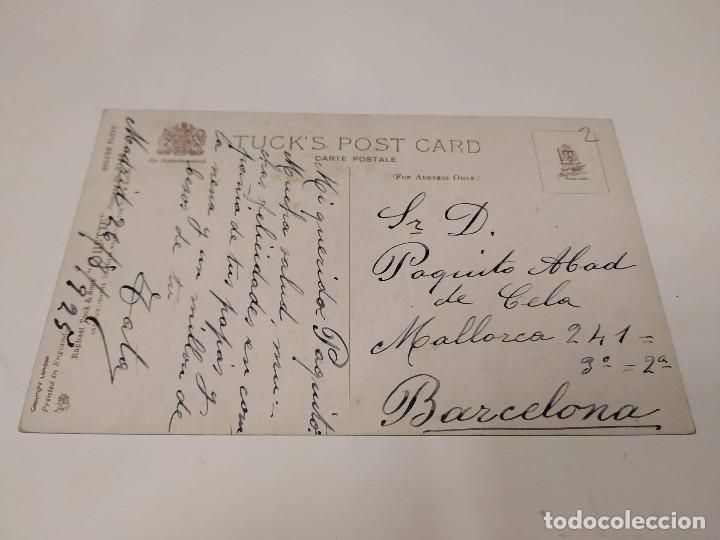 TUCK'S POST CARD
CARTE POSTALE
(FOR ADDRESS ONLY.)
By Appointment.
2
Sr D.
Paquito Abad
de Cela
Mallorca 241=
3º = 2ª
Barcelona
Mi querido Paquito:
Mucha salud, mu-
chas felicidades en com
pañia de tus papás y
la nena y un millon de
besos de tu
Tata
Madrid 26/8/925
Raphael Tuck & Sons
Copyright London
Printed in England
todocoleccion
todocoleccion.net